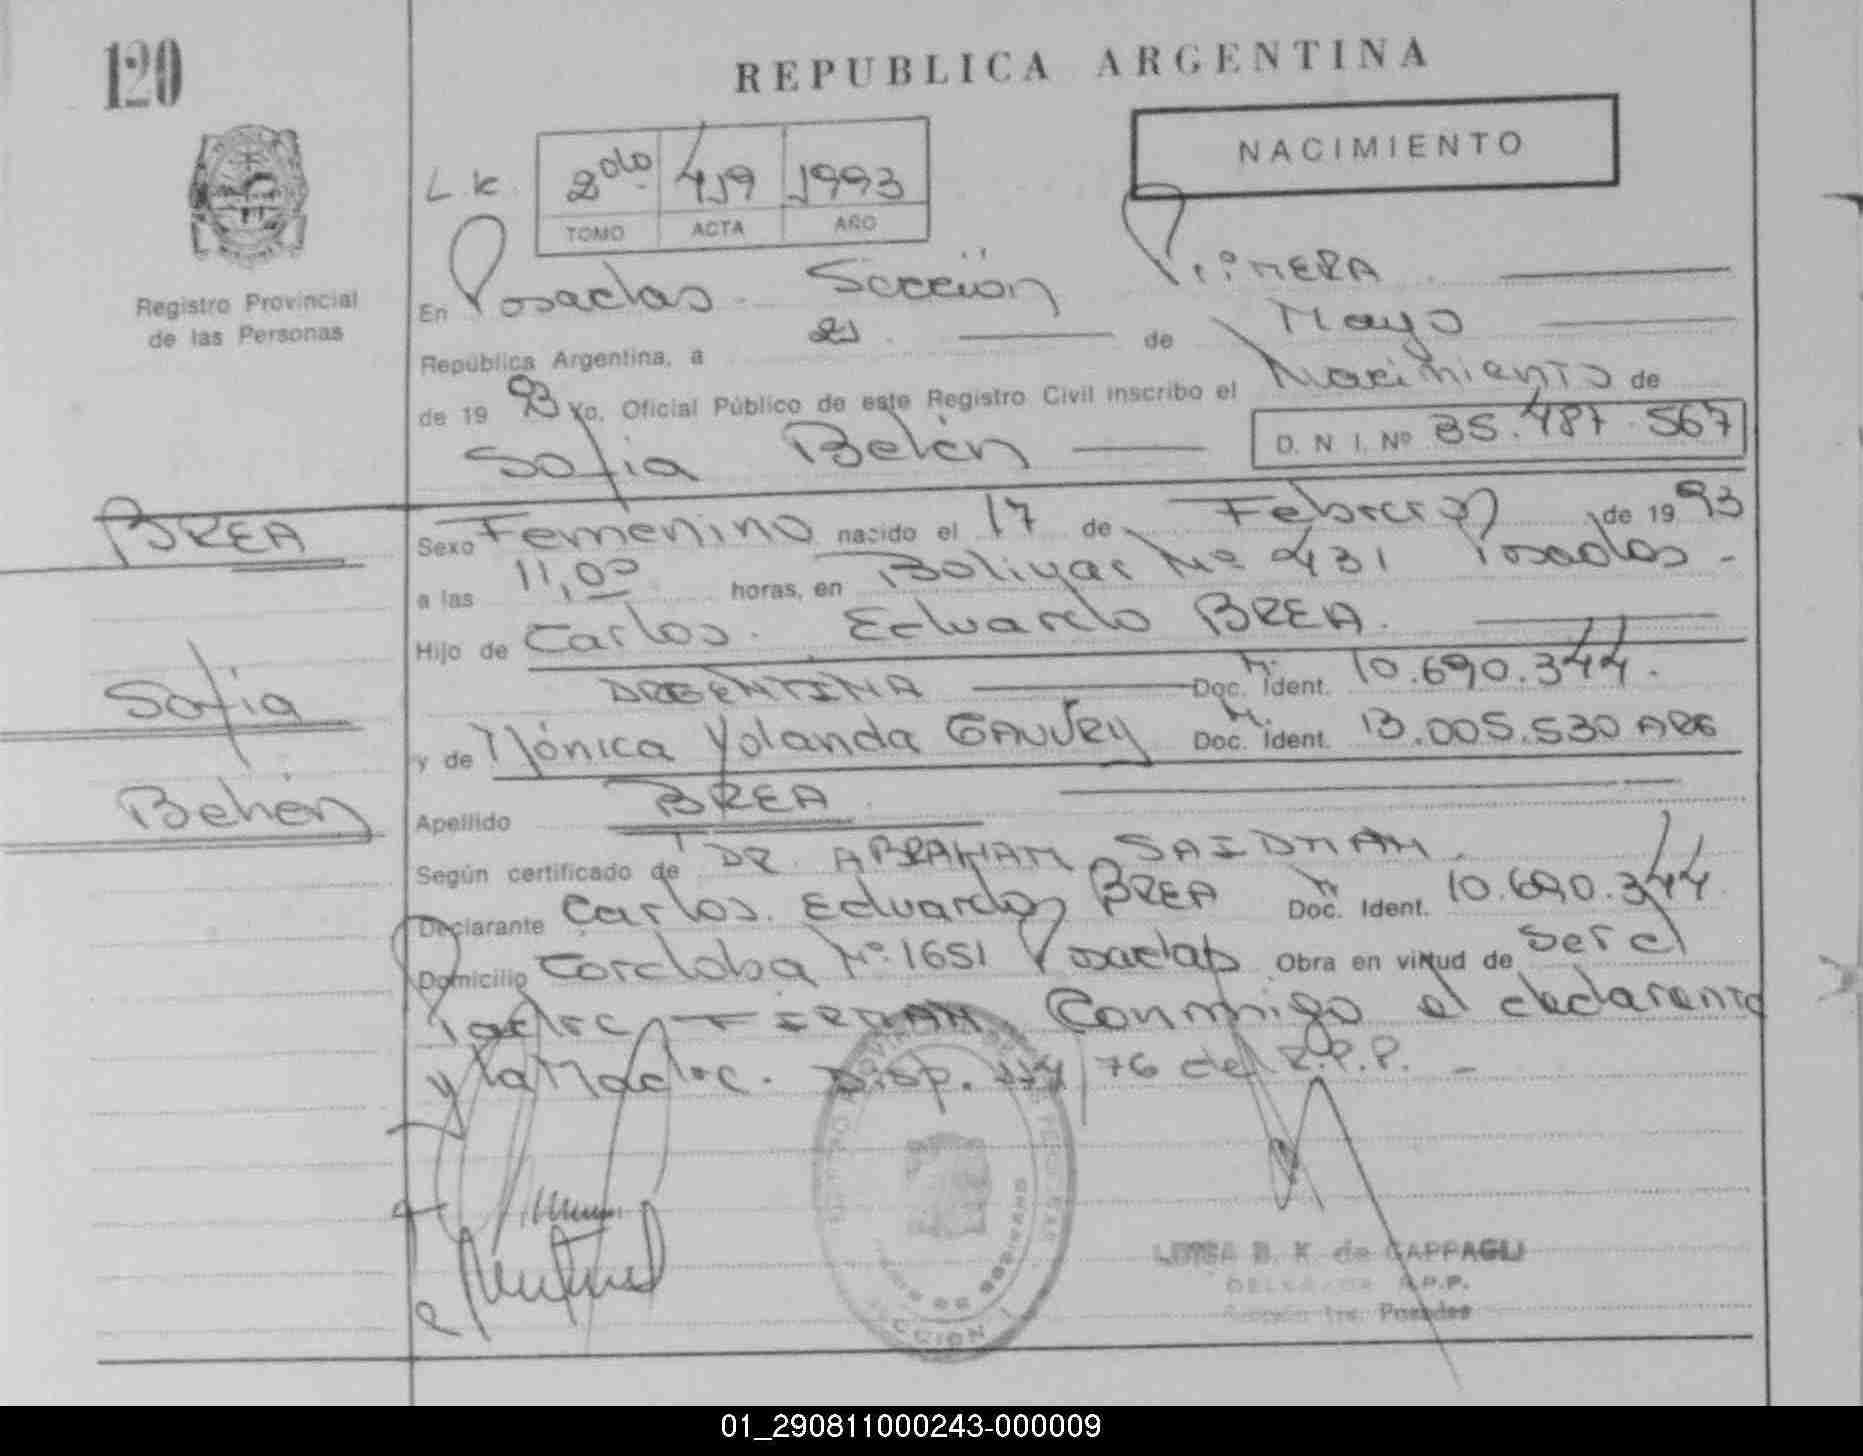 120
REPUBLICA ARGENTINA
NACIMIENTO
L.k. 2do 419 1993
TOMO ACTA AÑO
Registro Provincial
de las Personas
En Posadas. Sección Primera
República Argentina, a 21 de Mayo
de 1993 Yo, Oficial Público de este Registro Civil inscribo el Nacimiento de
Sofia Belén D. N. I. Nº 35.487.567
BREA
Sexo Femenino nacido el 17 de Febrero de 1993
a las 11,00 horas, en Bolivar Nº 431 Posadas -
Hijo de Carlos. Eduardo BREA.
Sofia
ARGENTINA Doc. Ident. 10.690.344.
y de Mónica Yolanda Doc. Ident. 13.005.530 ARG
Belén
Apellido BREA
Según certificado de DR. ABRAHAM SAIDMAN.
Declarante Carlos. Eduardo BREA Doc. Ident. 10.690.344
Domicilio Cordoba Nº 1651 Posadas Obra en virtud de ser el
Padre FIRMAN Conmigo el declarante
y la Madre. Disp. 76 del R.P.P. -
SECCION 1
B. K. de CAPPAGLI
R.P.P.
Posadas
01_290811000243-000009